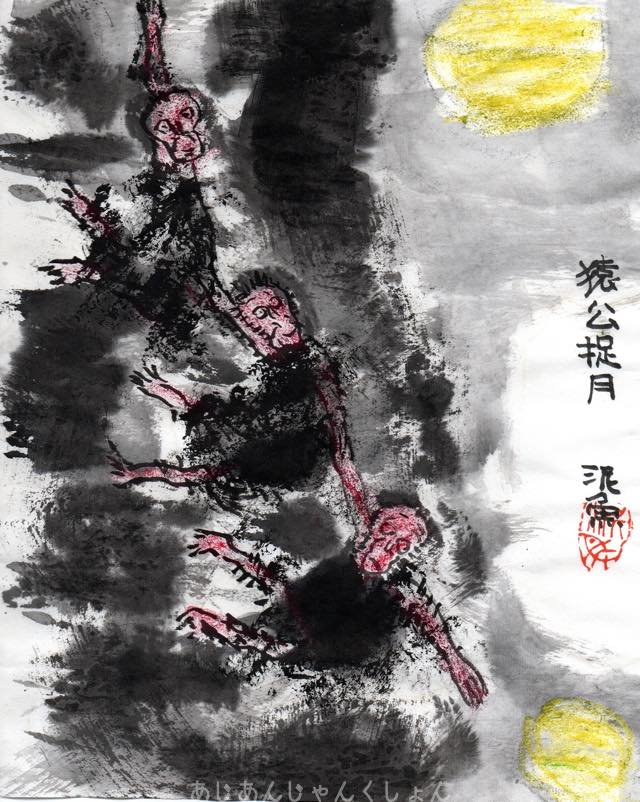 猿公捉月
泥魚
あじあんじゃんくしょん